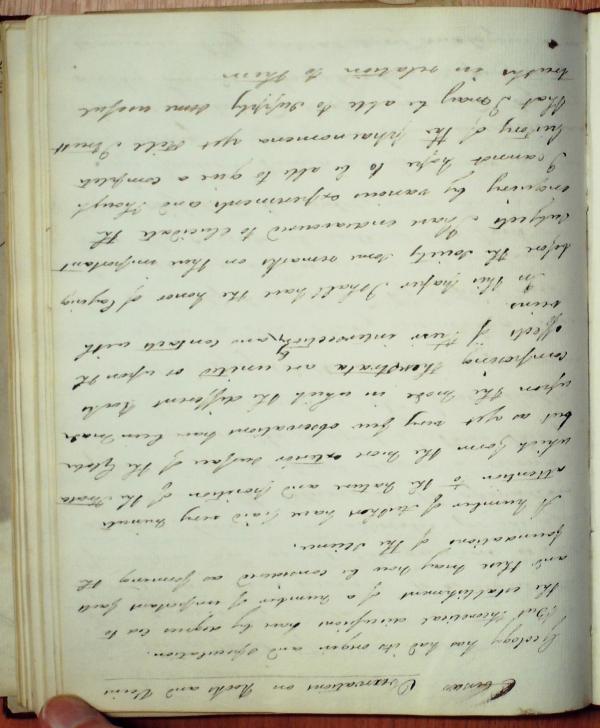 Observations on Rocks and Veins
Geology has had its origin and speculation.
But theoretical discussions have by degrees led to
the establishment of a number of important facts
and these may now be considered as forming the
foundations of the science.
A number of Authors have paid very minute
attention to the nature and position of the Strata
which form the mere exterior surface of the Globe
but as yet very few observations have been made
upon the mode in which the different rocks
composing the strata are united or upon the
effects of their intersection by and contacts with
veins.
In this paper I shall have the honor of laying
before the Society some remarks on these important
subjects I have endeavoured to elucidate the
enquiry by various experiments and though
I cannot hope to be able to give a complete
history of the phaenomena yet still I trust
that I may be able to supply some useful
truths in relation to them